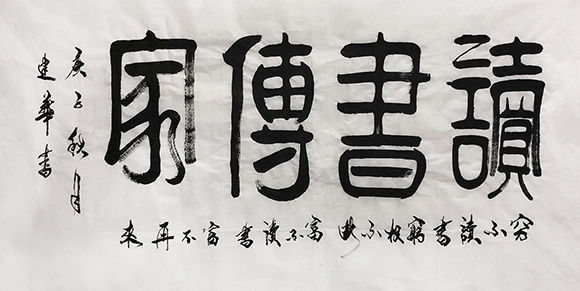 讀書傳家
穷不讀書窮根不断富不讀書富不再来
庚子秋月
建華書